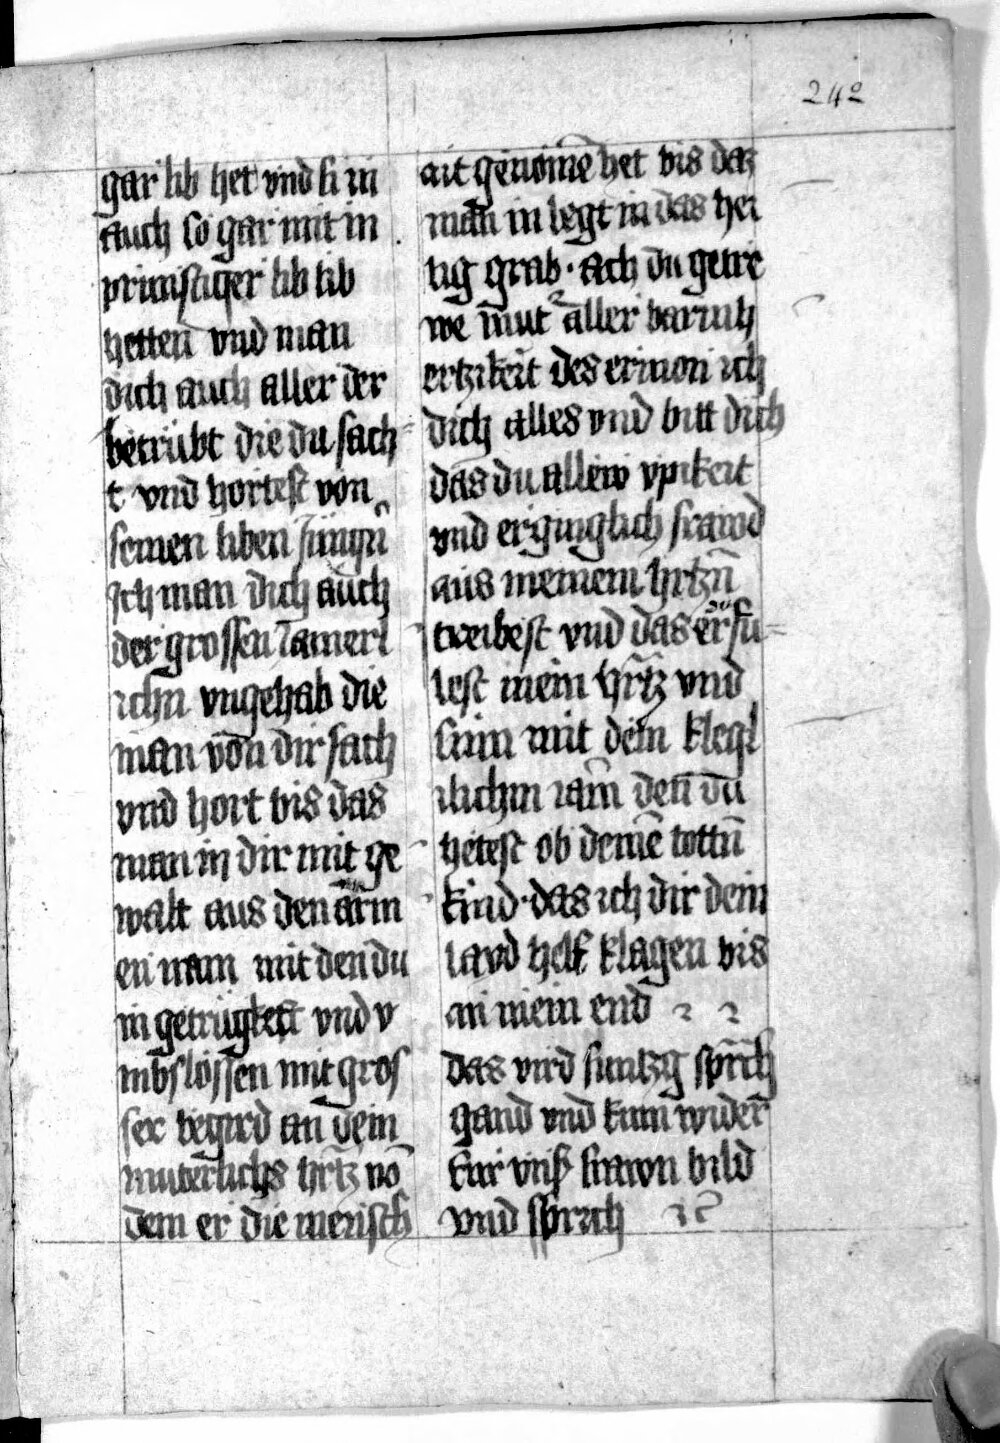 242
gar lib het vnd si in
auch so gar mit in
prinstiger lib lib
hetten vnd man
dich auch aller der
betrübt die du sach
t vnd hortest von
seinen liben jüngn̄
Ich man dich auch
der grossen Iamerl
ichn vngehab die
man von dir sach
vnd hort bis das
man in dir mit ge
walt aus den arm
en nam mit den du
in getrügkett vnd v
mbslossen mit gros
ser begird an dein
muterlichs hrtz vō
dem er die mensch
ait genōmē het vis daz
man in legt in das hei
lig grab · ach du getre
we mut aller barmh
ertzikeit des ermon ich
dich alles vnd bitt dich
das du allew vpikeit
vnd erginglich frawd
aus meinem hrtzn̄
treibest vnd das erfu
lest mein hrtz vnd
sinn mit dem klegl
ilichm iam den du
hetest ob deinē tottn̄
kind · das ich dir dein
layd helf klagen bis
an mein end
das vird funtzg sprch
gand vnd kum wider
für vnß frawn bild
vnd sprich